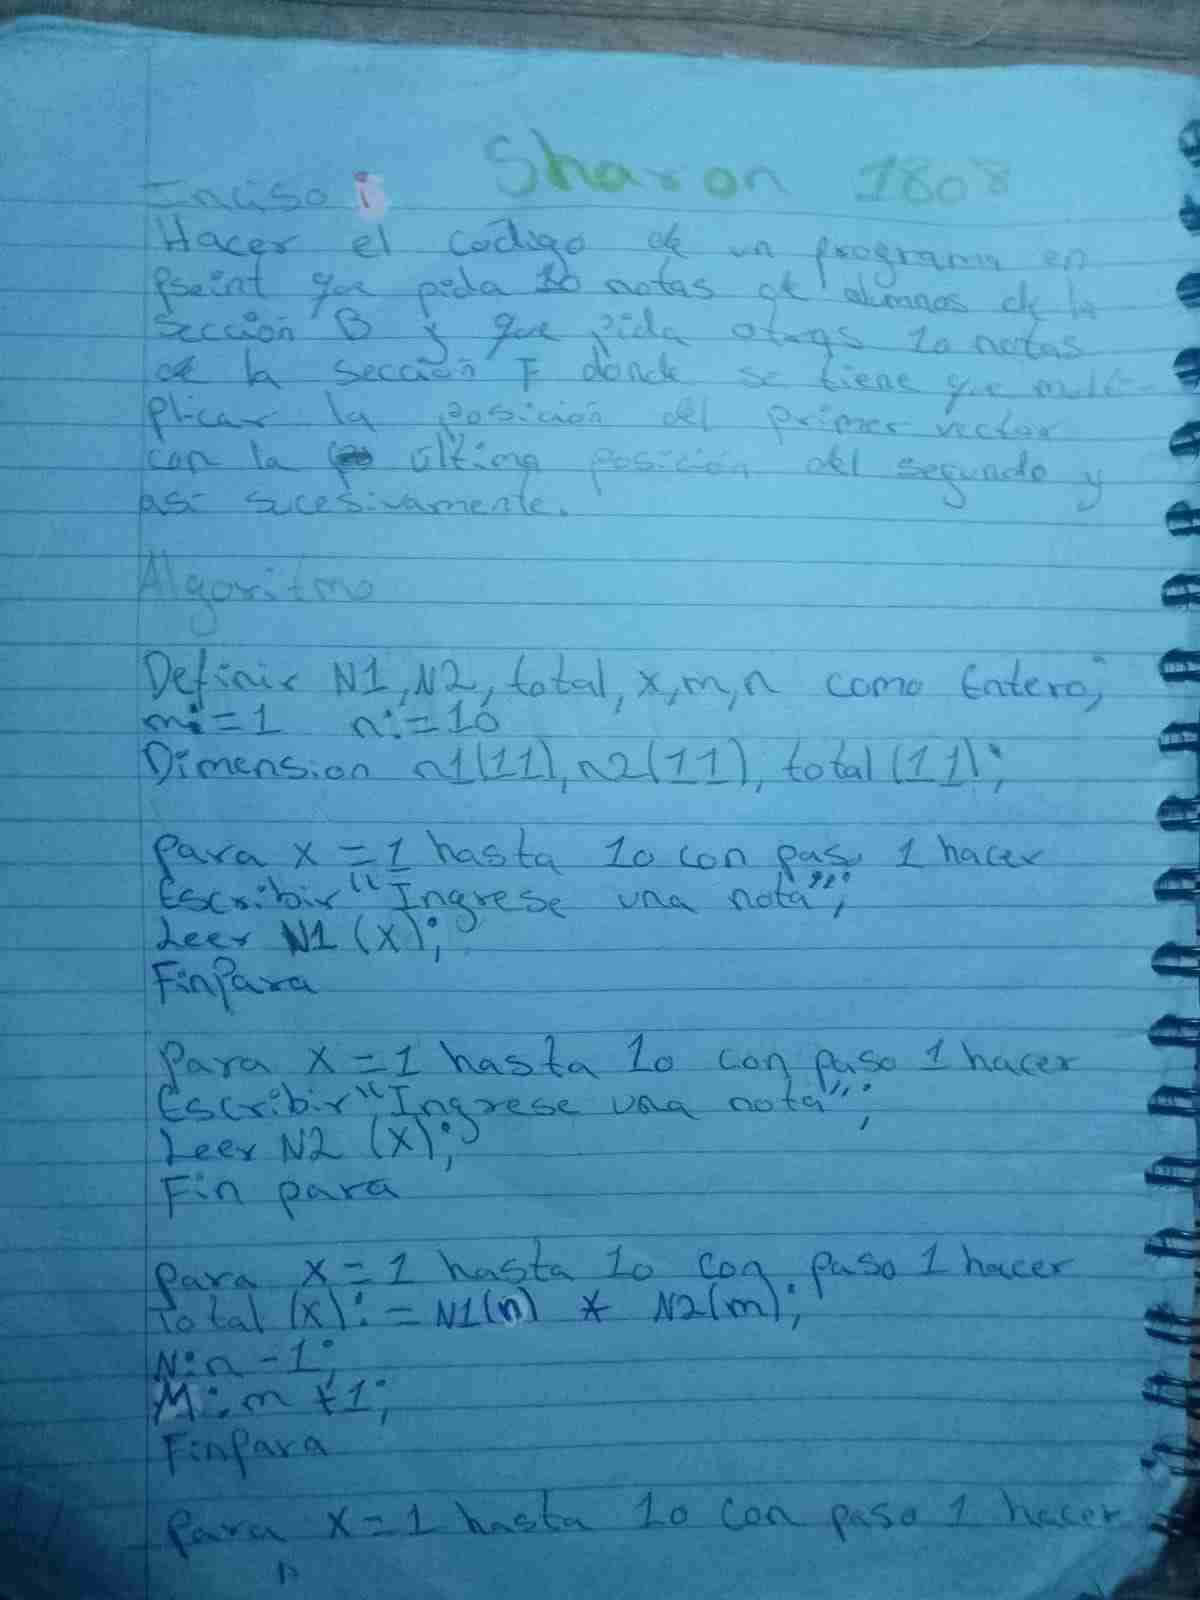 Sharon 1808
Inciso i
Hacer el código de un programa en
Pseint que pida 10 notas de alumnos de la
sección B y que pida otras 10 notas
de la sección F donde se tiene que multi-
plicar la posición del primer vector
con la última posición del segundo y
asi sucesivamente.
Algoritmo
Definir N1, N2, total, x, m, n como Entero;
m:=1 n:=10
Dimension n1(11), n2(11), total (11);
para x =1 hasta 10 con paso 1 hacer
Escribir "Ingrese una nota";
Leer N1 (x);
FinPara
Para x =1 hasta 10 con paso 1 hacer
Escribir "Ingrese una nota";
Leer N2 (x);
Fin para
para x =1 hasta 10 con paso 1 hacer
total (x):= N1(n) * N2(m);
N:n -1;
M:m +1;
FinPara
para x=1 hasta 10 con paso 1 hacer